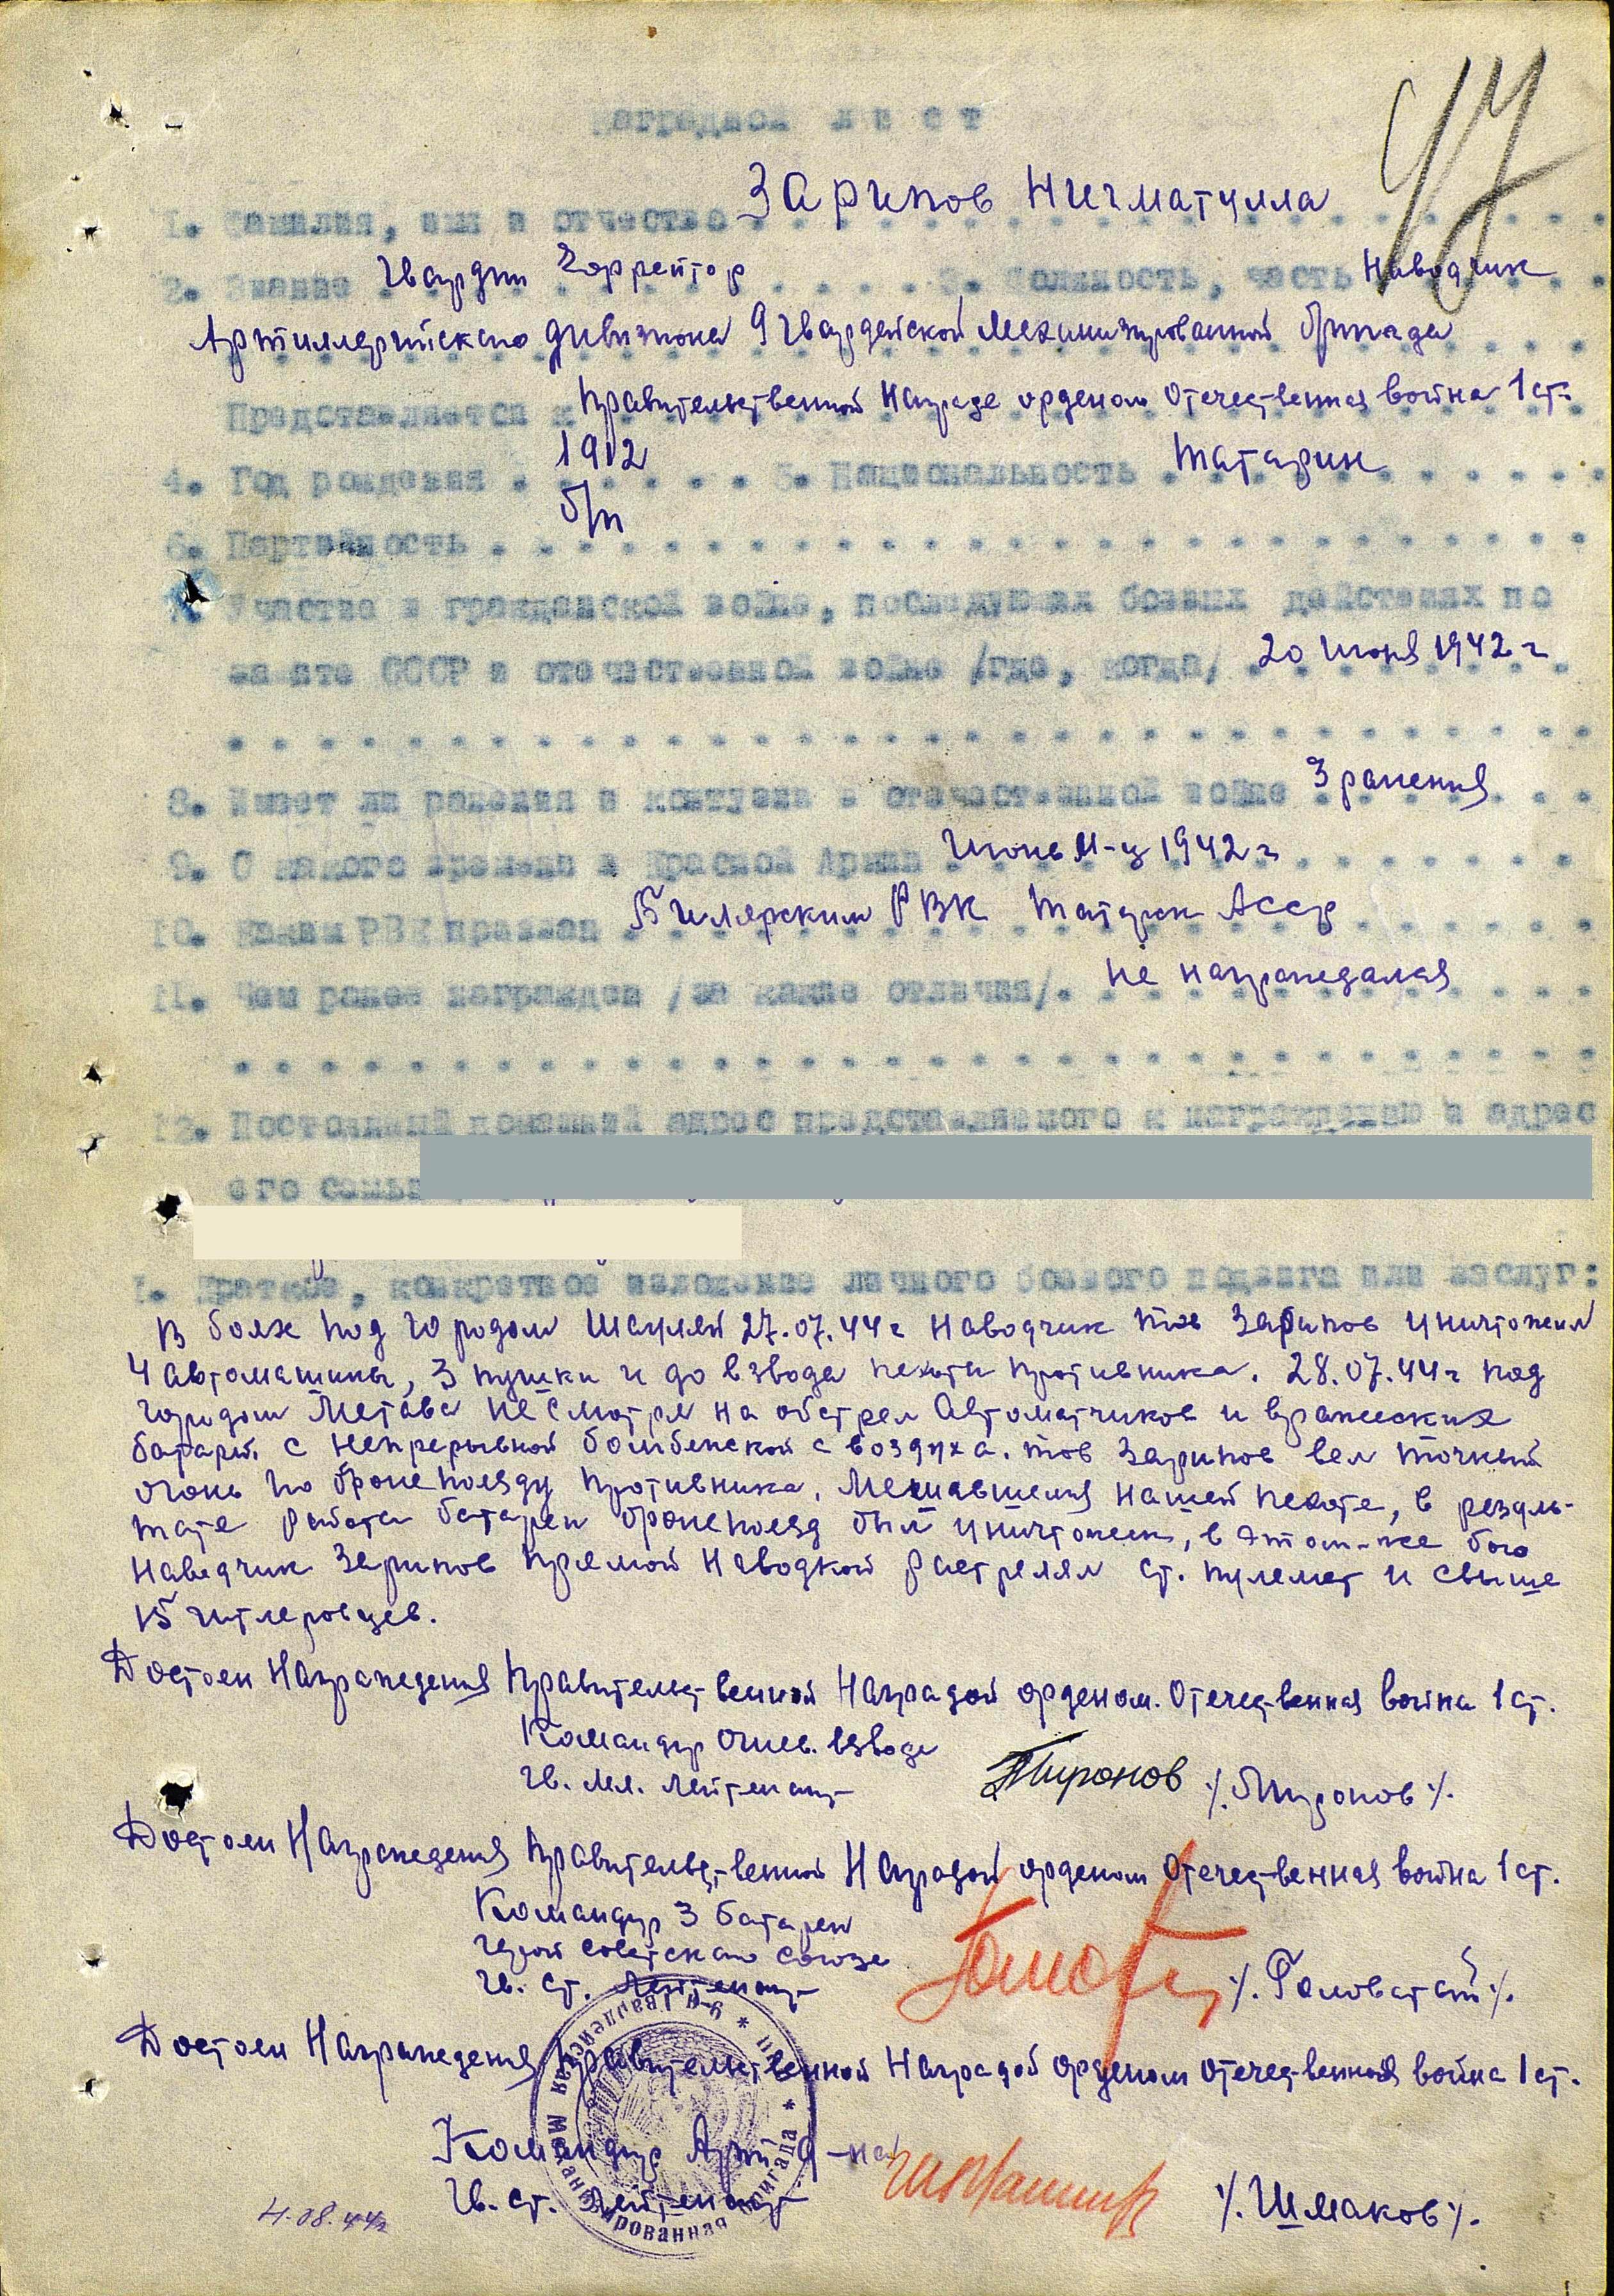 Наградной лист
47
Зарипов Нигматулла
1. Фамилия, имя и отчество
Гвардии Эфрейтор Наводчик
2. Звание 3. Должность, часть
Артиллерийского дивизиона 9 Гвардейской Механизированной бригады
Правительственной Награде орденом Отечественная война 1 ст.
Представляется к
1912 татарин
4. Год рождения 5. Национальность
б/п
6. Партийность
7. Участие в гражданской войне, последующих боевых действиях по
20 июня 1942 г
защите СССР и отечественной войне /где, когда/
3 ранения
8. Имеет ли ранения и контузии в отечественной войне
Июнь м-ц 1942 г
9. С какого времени в Красной Армии
Билярским РВК Татарск АССР
10. Каким РВК призван
не награждался
11. Чем ранее награжден /за какие отличия/
12. Постоянный домашний адрес представляемого к награждению и адрес
его семьи
1. Краткое, конкретное изложение личного боевого подвига или заслуг:
В боях под городом Шауляй 27.07.44 г наводчик тов Зарипов уничтожил
4 автомашины, 3 пушки и до взвода пехоты противника. 28.07.44 г под
городом Метава не смотря на обстрел Автоматчиков и вражеских
батарей. с непрерывной бомбежкой с воздуха. тов Зарипов вел точный
огонь по бронепоезду противника, мешавшемуся нашей пехоте, в резуль-
тате работы батареи бронепоезд был уничтожен, в этом-же бою
наводчик Зарипов прямой наводкой растрелял ст. пулемет и свыше
15 гитлеровцев.
Достоен Награждения Правительственной Наградой орденом. Отечественная война 1 ст.
Командир огнев. взвода
гв. мл. лейтенант Миронов /. Миронов /.
Достоен Награждения Правительственной Наградой орденом Отечественная война 1 ст.
Командир 3 батареи
герой советского союза
гв. ст. лейтенант /. Головатый /.
Достоен Награждения Правительственной Наградой орденом Отечественная война 1 ст.
Командир Арт д-на
гв. ст. лейтенант /. Шмаков /.
4.08.44г
9-я Гвардейская механизированная бригада